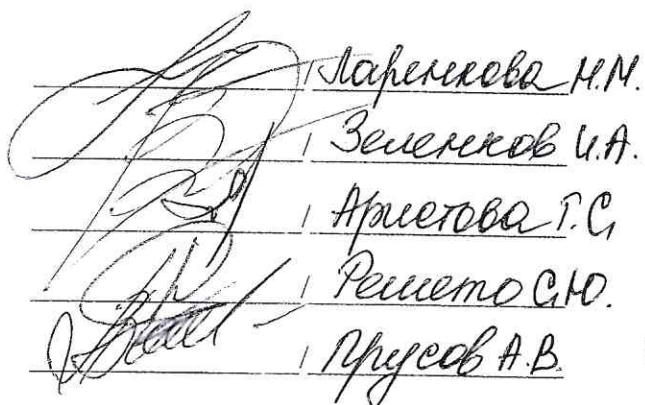 / Ларенкова Н.М.
/ Зеленков И.А.
/ Аристова Т.С.
/ Решето С.Ю.
/ Прусов А.В.